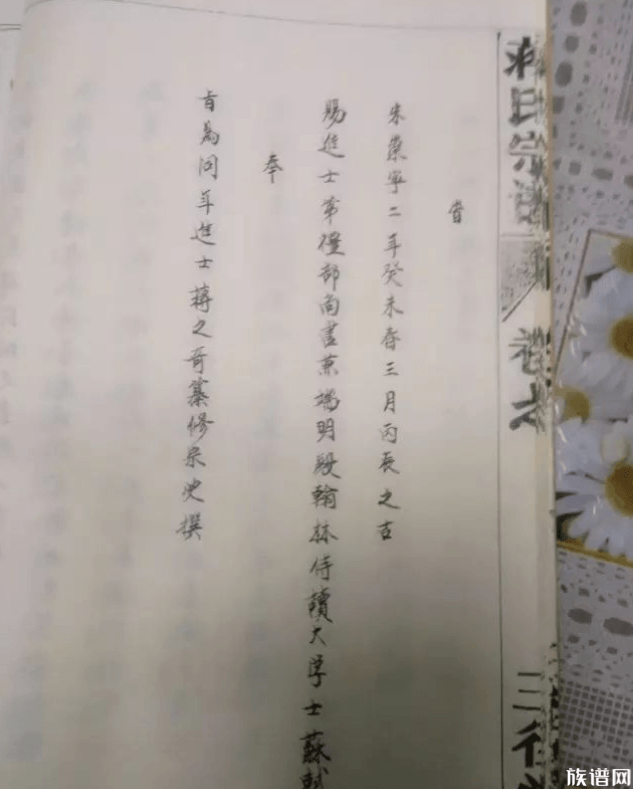 旹
宋崇寧二年癸未春三月丙辰之吉
賜進士第禮部尚書兼端明殿翰林侍讀大學士蘇軾
奉
旨為同年進士蔣之奇纂修宗史撰
蔣氏宗譜
卷之
三徑
族谱网